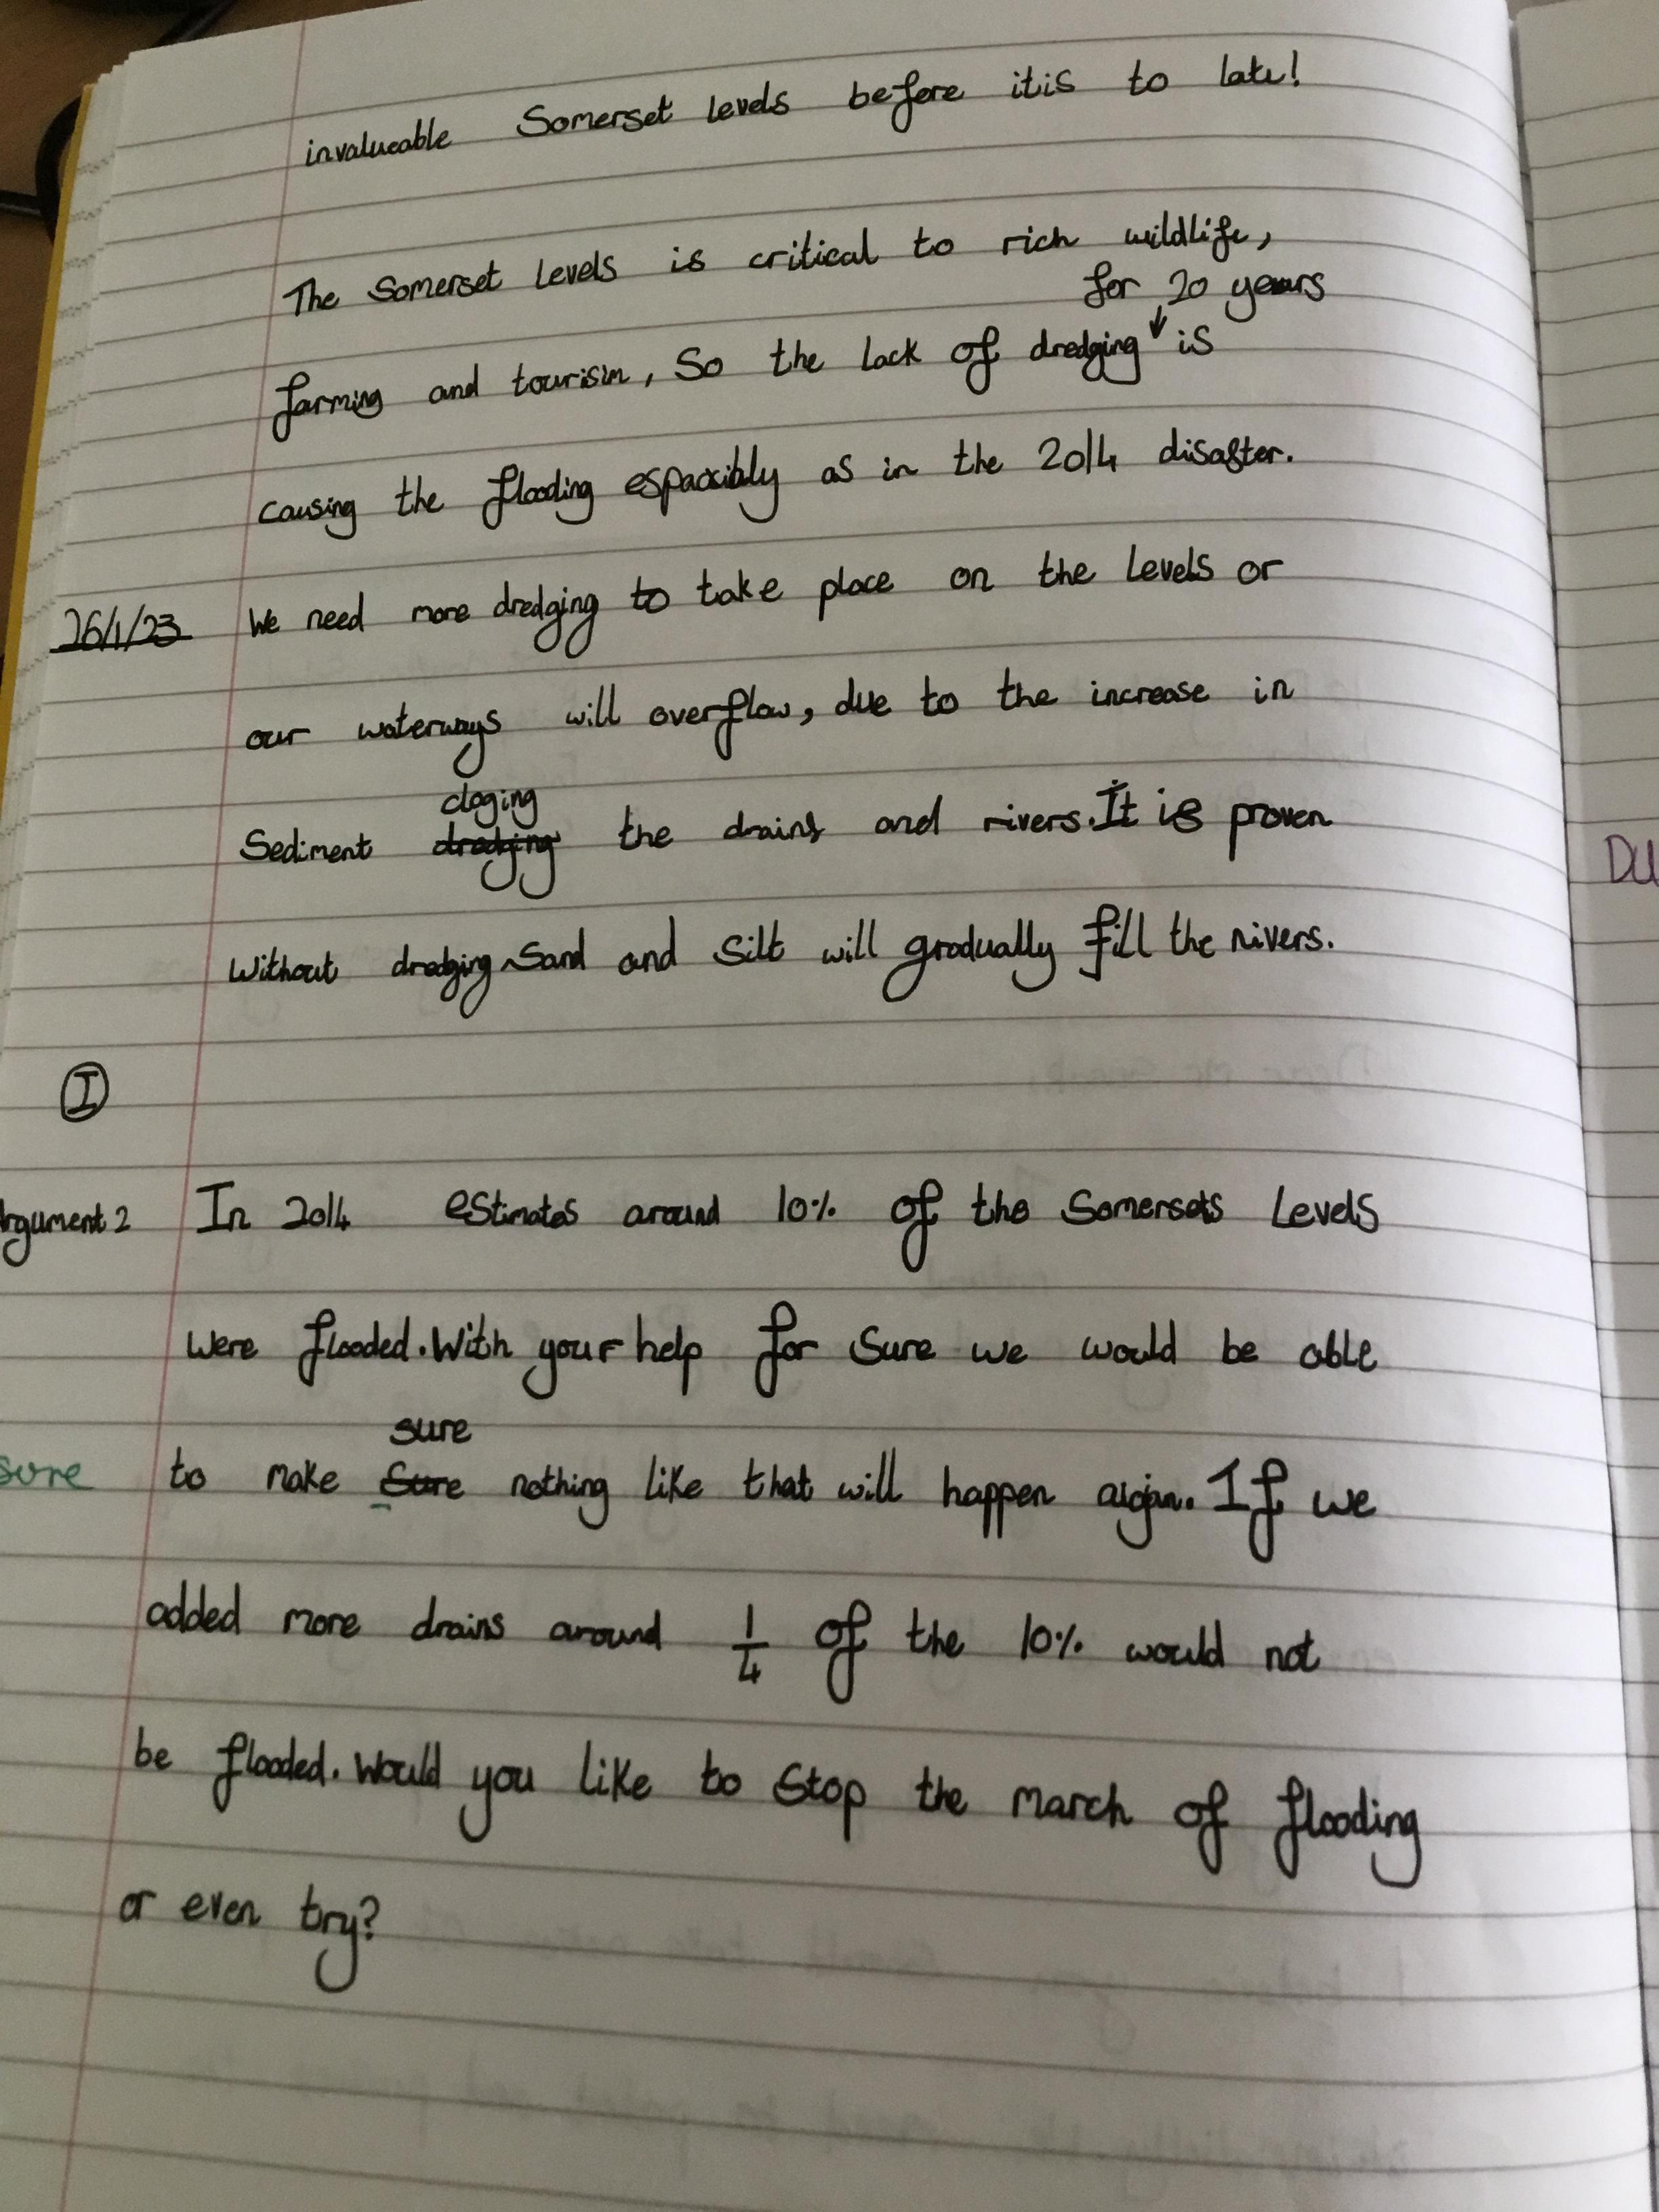 invalueable Somerset Levels before itis to late!
The Somerset Levels is critical to rich wildlife,
for 20 years
farming and tourism, So the lack of dredging is
causing the flooding as in the 2014 disaster.
26/1/23 We need more dredging to take place on the Levels or
our waterways will overflow, due to the increase in
cloging
Sediment dredging the drains and rivers. It is proven
Without dredging Sand and Silt will gradually fill the rivers.
I
Argument 2 In 2014 estimates around 10% of the Somersets Levels
were flooded. With your help for Sure we would be able
sure
sure to make Sure nothing like that will happen If we
added more drains around 1/4 of the 10% would not
be flooded. Would you like to Stop the march of flooding
or even try?
DU